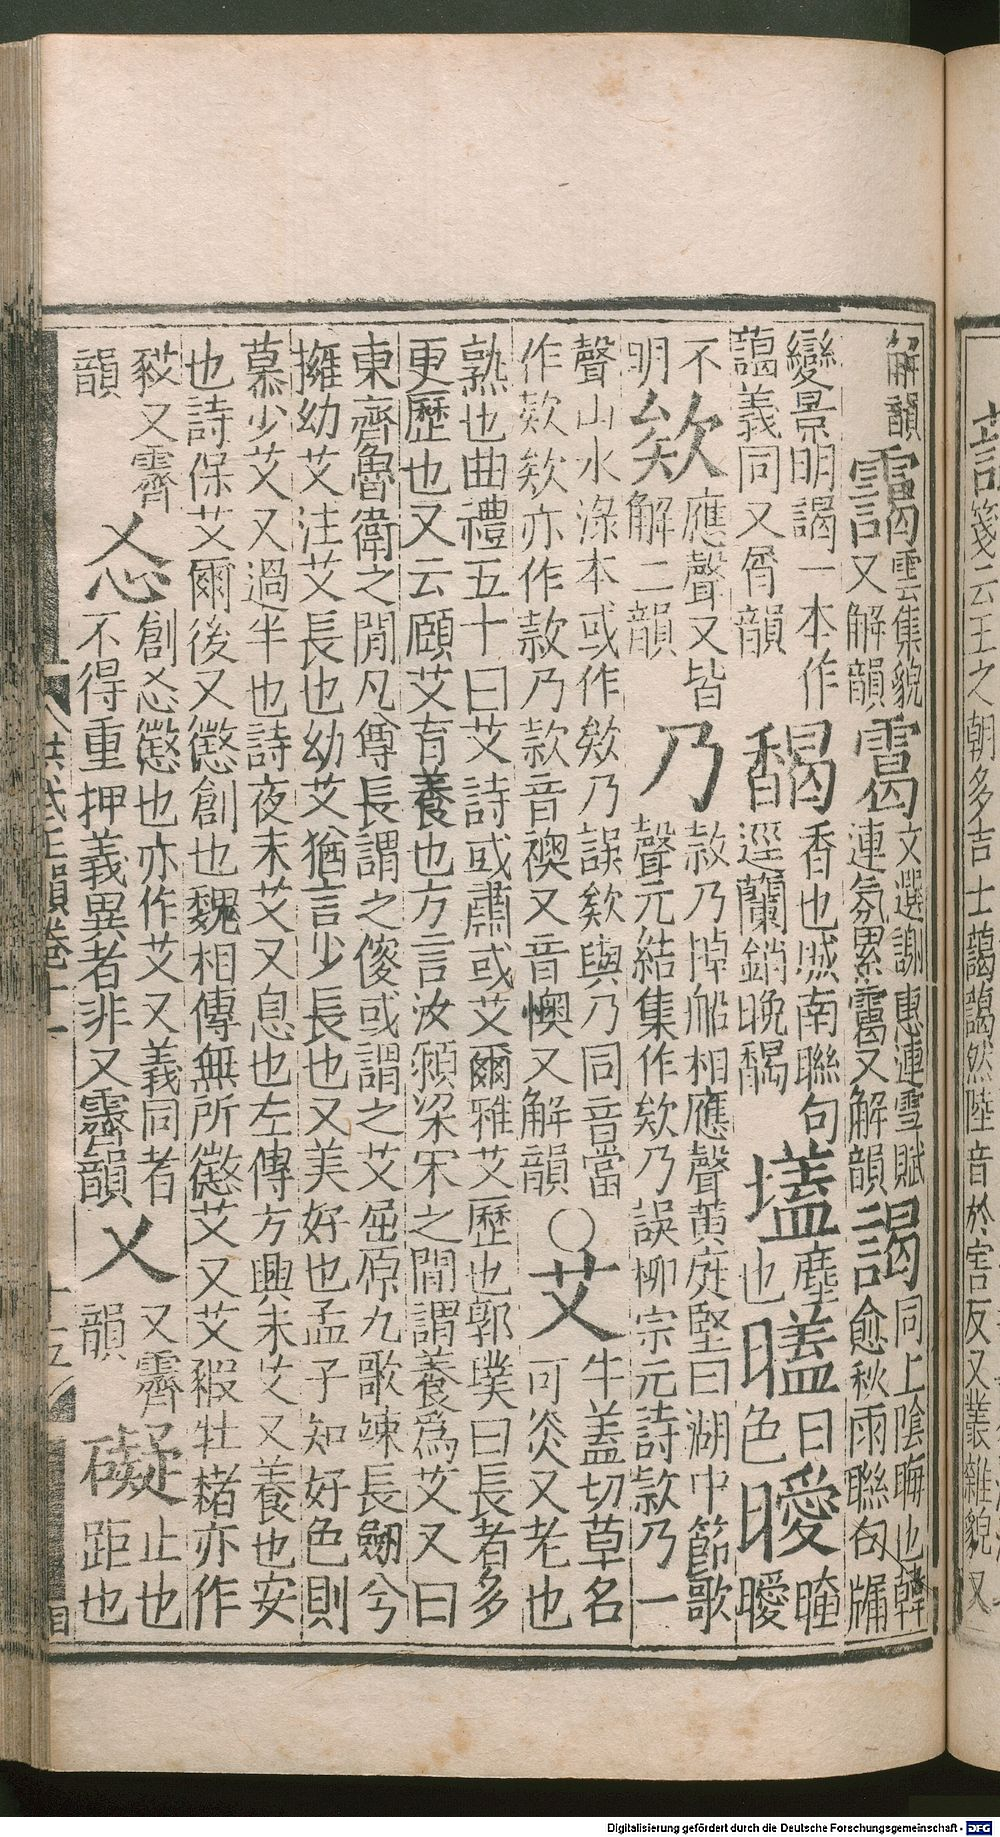 解韻靄雲集貌又解韻靄文選謝惠連雪賦連氛累靄又解韻謁同上陰晦也韓愈秋雨聯句牖
變景明謁一本作藹義同又曷韻馤香也城南聯句逕蘭銷晚馤壒塵也㬣日色曖晻曖
不明欸應聲又皆解二韻乃欸乃棹船相應聲黃庭堅曰湖中節歌聲元結集作欸乃誤柳宗元詩款乃一
聲山水淥本或作欸乃誤欸與乃同音當作欸欸亦作款乃款音襖又音懊又解韻○艾牛蓋切草名可灸又老也
熟也曲禮五十曰艾詩或肅或艾爾雅艾歷也郭璞曰長者多更歷也又云頤艾育養也方言汝潁梁宋之間謂養爲艾又曰
東齊魯衛之間凡尊長謂之傁或謂之艾屈原九歌竦長劒兮擁幼艾注艾長也幼艾猶言少長也又美好也孟子知好色則
慕少艾又過半也詩夜未艾又息也左傳方興未艾又養也安也詩保艾爾後又懲創也魏相傳無所懲艾又艾豭牡豬亦作
豛又霽韻㣻創㣻懲也亦作艾乂義同者不得重押義異者非又霽韻乂又霽韻礙止也距也
洪武正韻卷十一 十五
箋云王之朝多吉士藹藹然陸音於害反又叢雜貌又
Digitalisierung gefördert durch die Deutsche Forschungsgemeinschaft - DFG